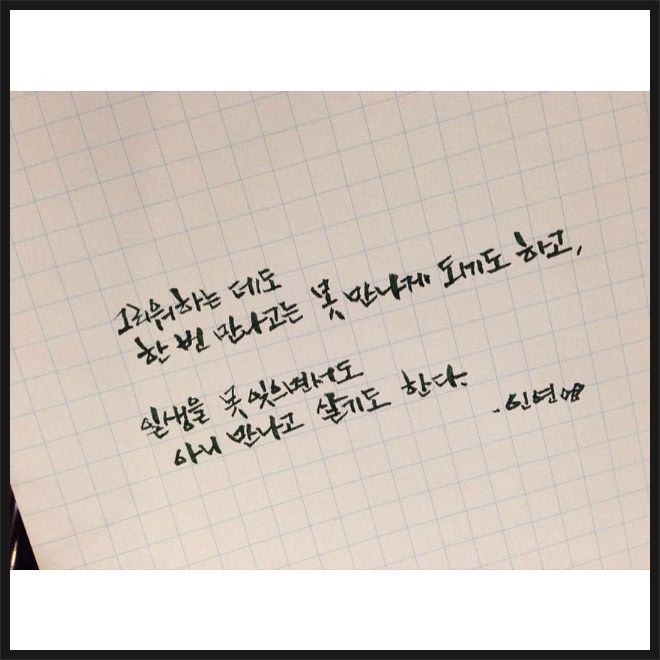 그리워하는 데도
한 번 만나고는 못 만나게 되기도 하고,
일생을 못 잊으면서도
아니 만나고 살기도 한다.
- 인연